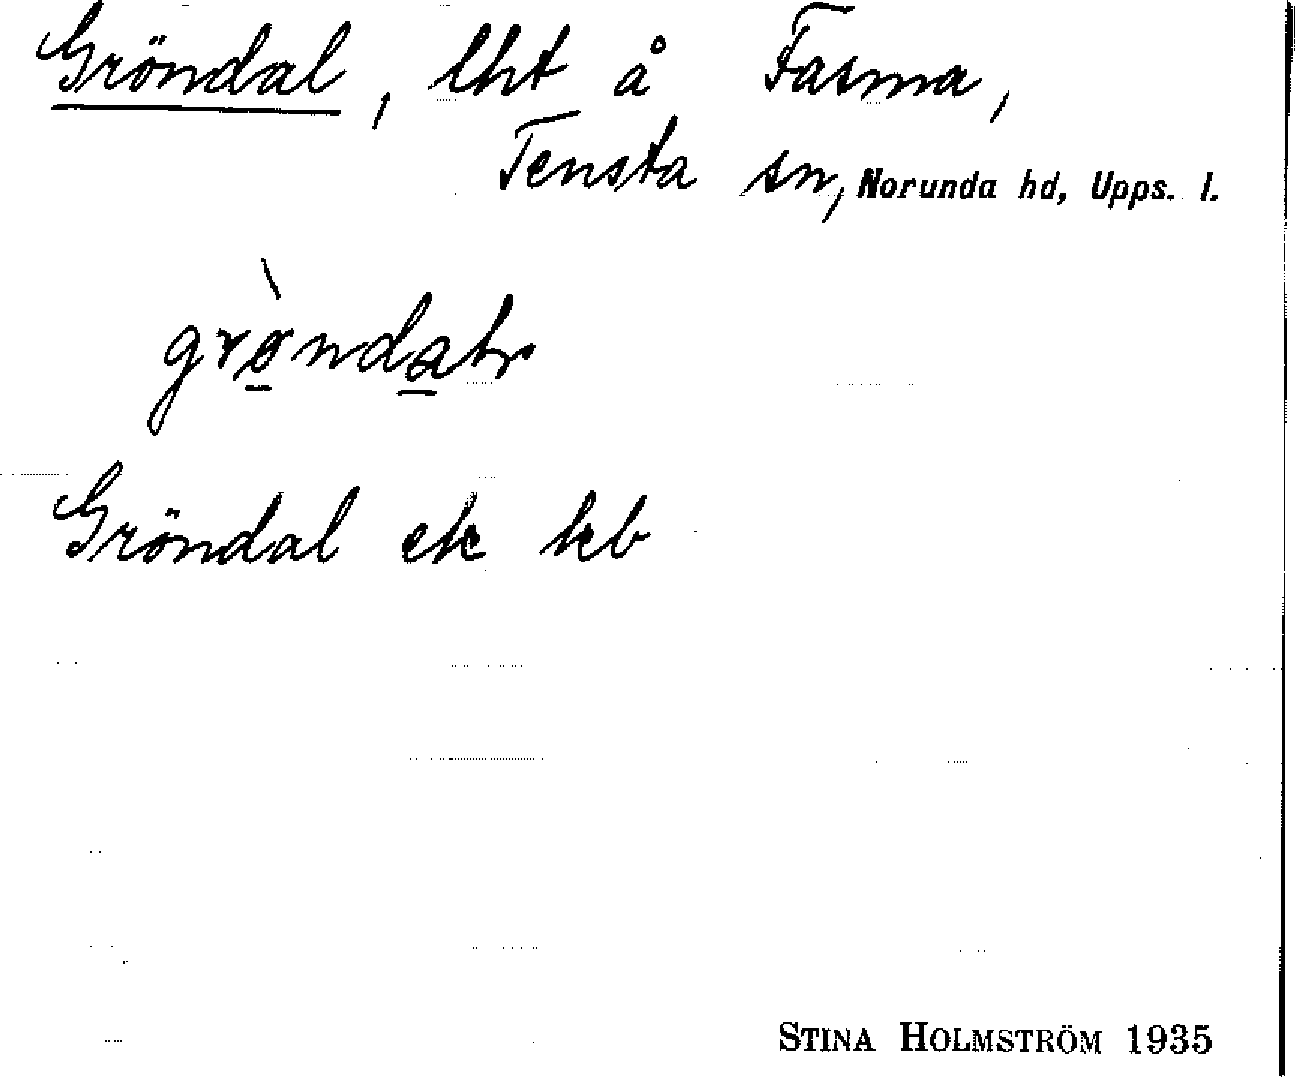 Gröndal, lht å Fasma,
Tensta sn, Norunda hd, Upps. l.
Gröndal ek kb
STINA HOLMSTRÖM 1935